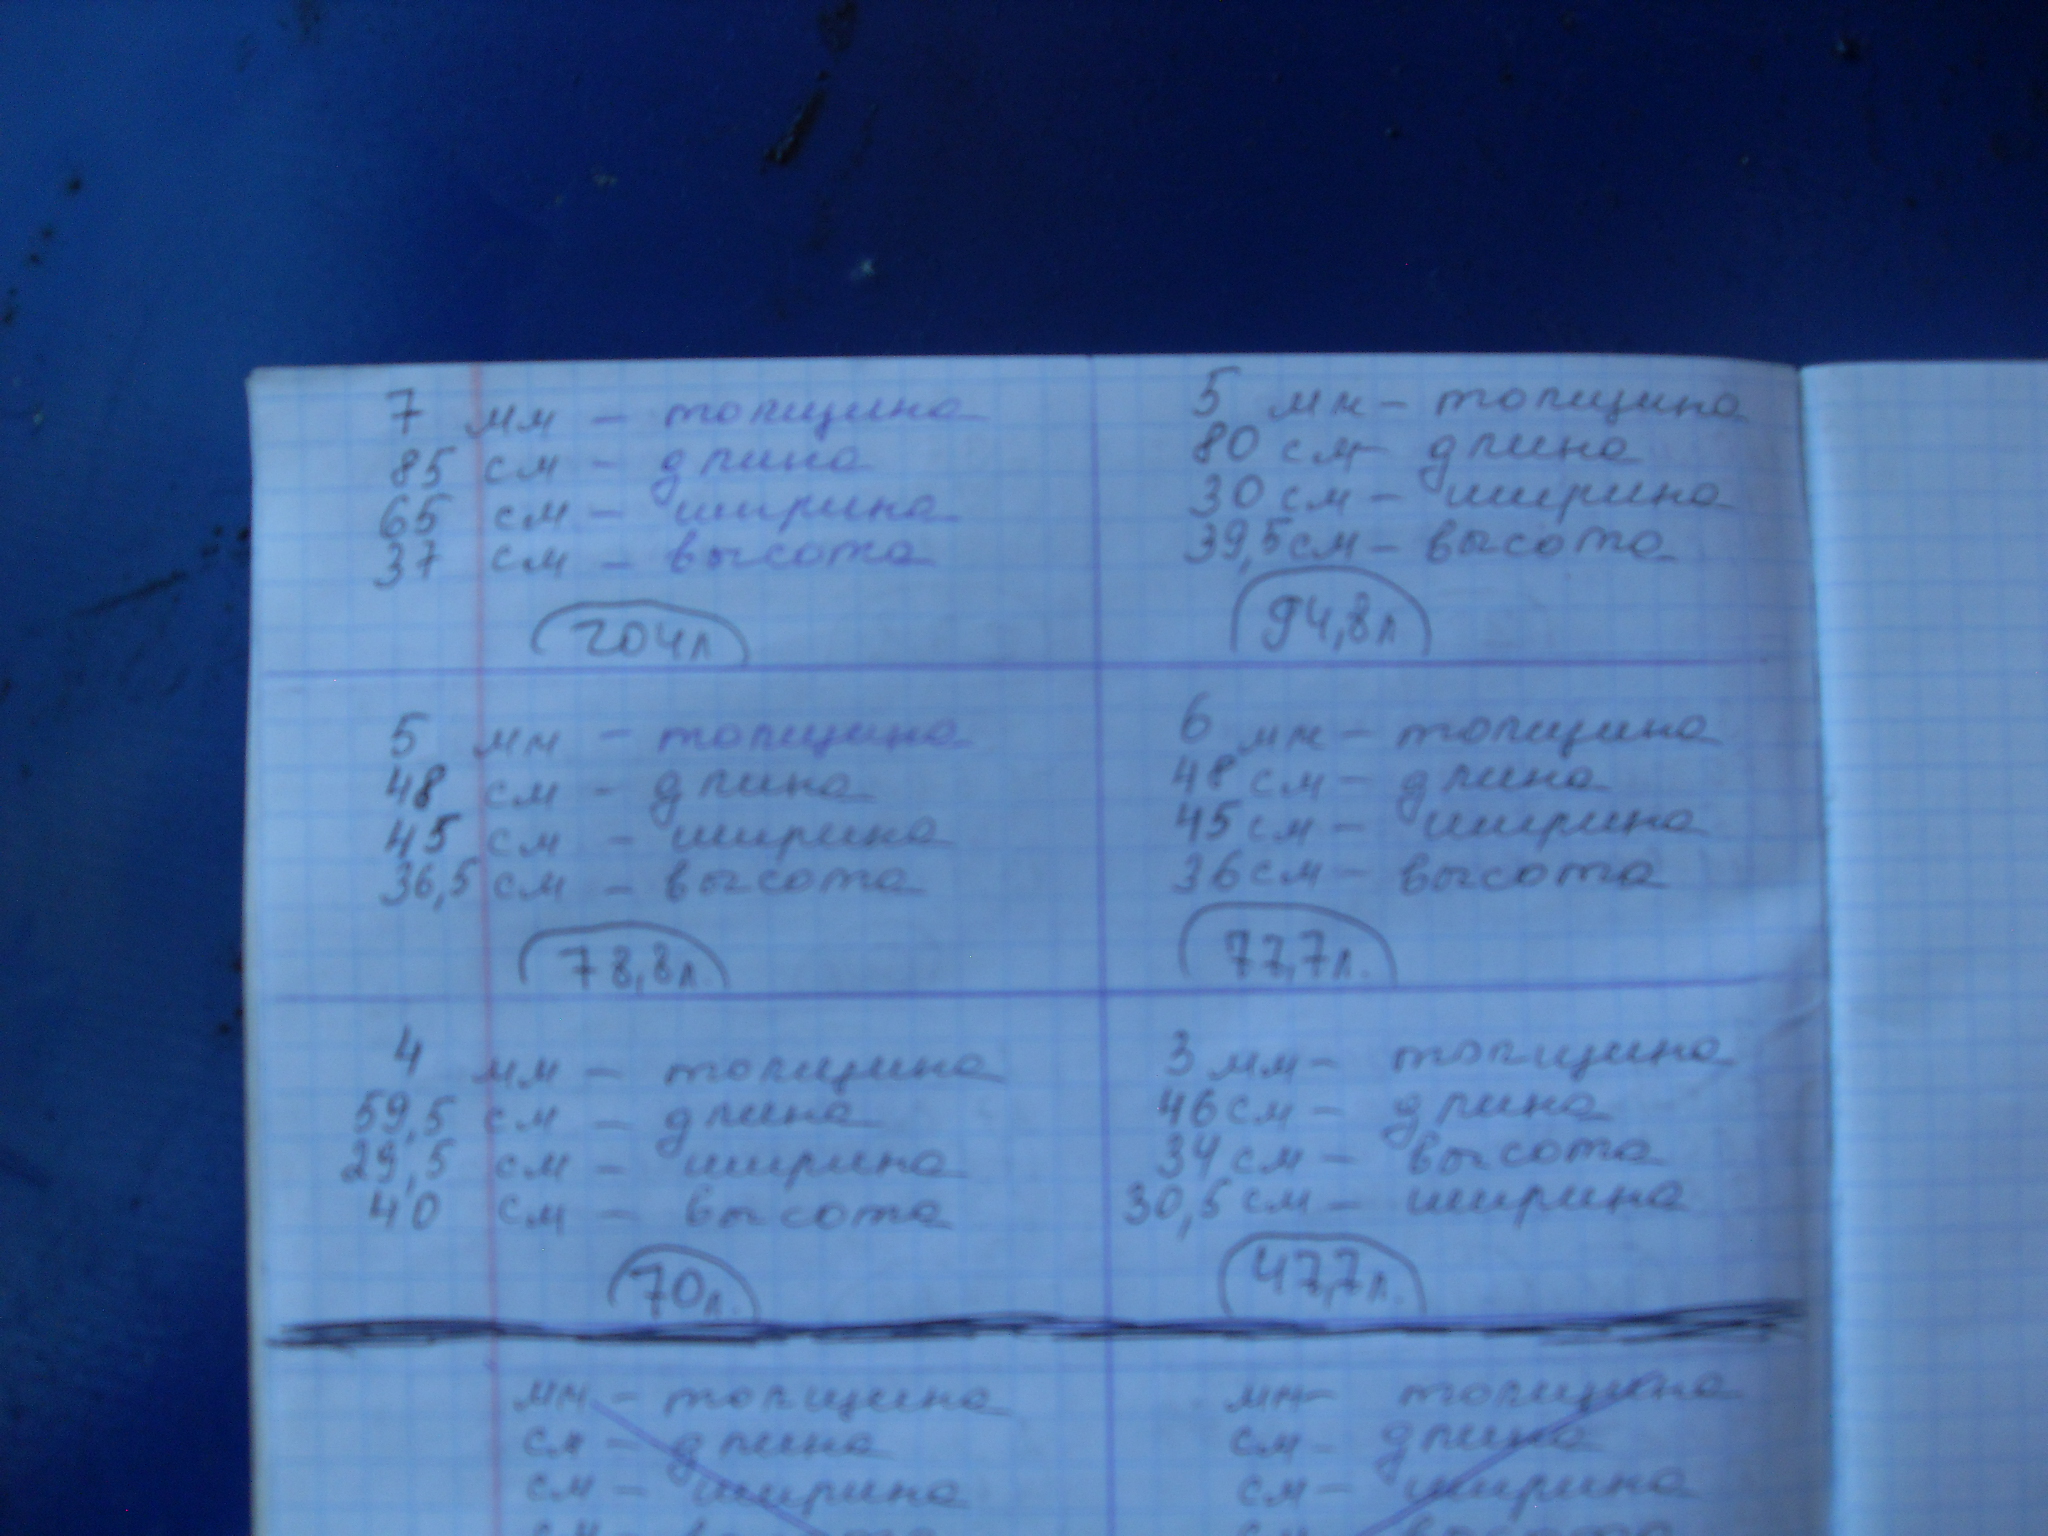 7 мм - толщина
85 см - длина
65 см - ширина
37 см - высота
204л
5 мм - толщина
80 см - длина
30 см - ширина
39,5 см - высота
94,8л
5 мм - толщина
48 см - длина
45 см - ширина
36,5 см - высота
78,8л.
6 мм - толщина
48 см - длина
45 см - ширина
36 см - высота
77,7л.
4 мм - толщина
59,5 см - длина
29,5 см - ширина
40 см - высота
70л.
3 мм - толщина
46 см - длина
34 см - высота
30,5 см - ширина
47,7л.
мм - толщина
см - длина
см - ширина
см - высота
мм - толщина
см - длина
см - ширина
см - высота